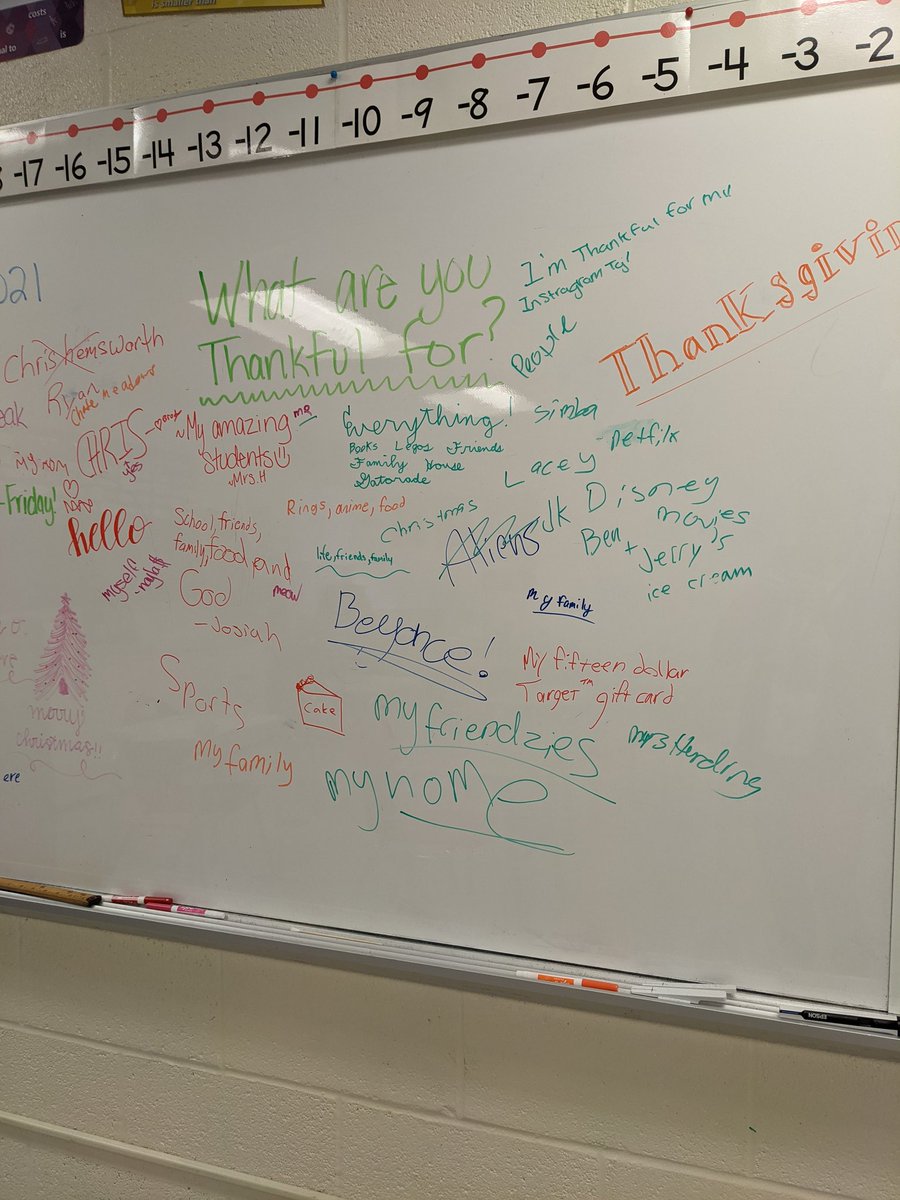 costs
is
is smaller than
-17 -16 -15 -14 -13 -12 -11 -10 -9 -8 -7 -6 -5 -4 -3 -2
021
What are you
Thankful for?
I'm Thankful for my
Instragram Tag!
People
Thanksgivin
Chris hemsworth
Ryan
eak
CHRIS
My mom
Friday!
hello
My amazing
Students
Mrs. H
me
Everything!
Books Legos Friends
Family House
Gatorade
Simba
netfilx
Lacey
JK Disney
movies
Ben + Jerry's
ice cream
Rings, anime, food
Christmas
Aliens
School, friends,
family, food and
God
-Josiah
life, friends, family
myself
meow
Beyonce!
my family
My fifteen dollar
Target™ gift card
Sports
Cake
my friendzies
mrs Herding
My family
my nome
merry
christmas!!
ere
EPSON